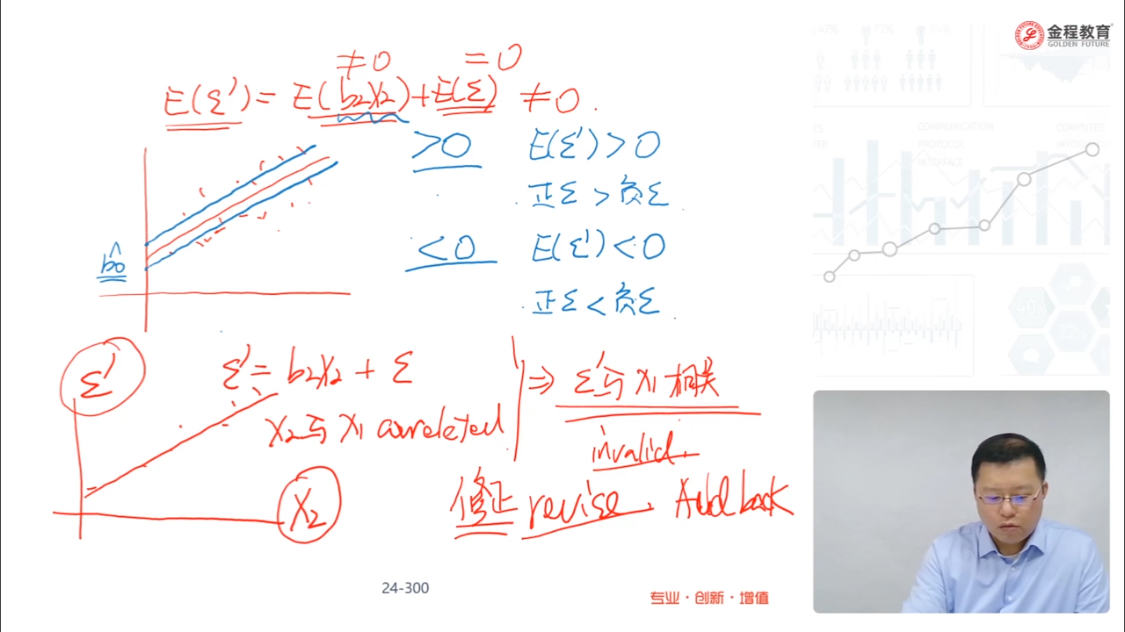 金程教育
GOLDEN FUTURE
≠0 =0
E(ε')= E(b₂X₂)+E(ε) ≠0.
>0 E(ε')>0
正ε>负ε
<0 E(ε')<0
正ε<负ε
b̂₀
ε'
ε'= b₂X₂ + ε
X₂与X₁ correlated
⇒ ε'与X₁相关
invalid.
X₂
修正 revise. Add back
24-300
专业·创新·增值